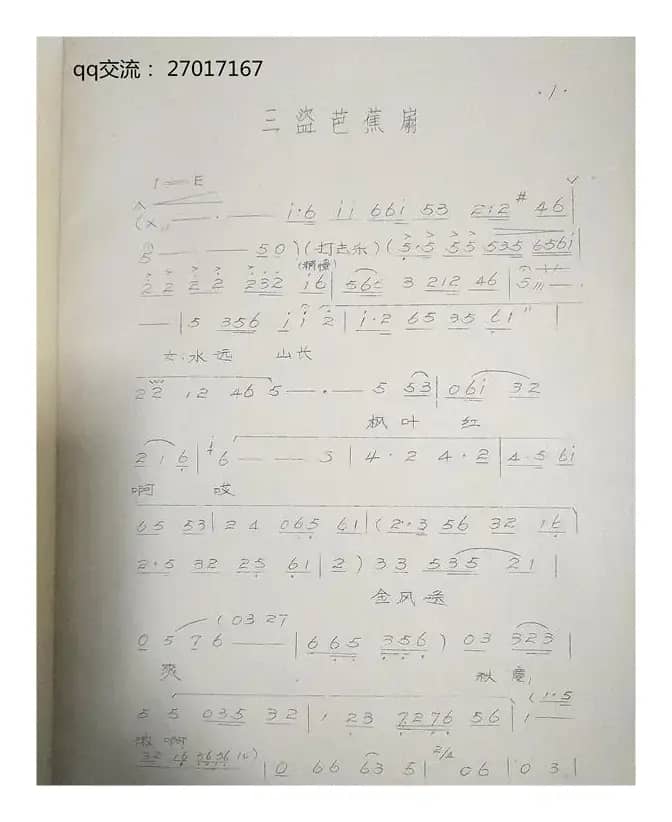 qq交流： 27017167
·1·
三盗芭蕉扇
1=E
i·6 i i 6 6 i 5 3 2·i 2 #4 6
5 — — — 5 0 ) (打击乐) ( 5·5 5 5 5 3 5 6 5 6 i
2 2 2 2 2 3 2 i 6 | 5 6 5 3 2 1 2 4 6 | 5
— | 5 3 5 6 i i 2 | i·2 6 5 3 5 6 i |
女:水远 山长
2 2 1 2 4 6 5 — · — 5 5 3 | 0 6 i 3 2
枫叶 红
2 1 6 | 6 — — 5 | 4·2 4·2 | 4·5 6 i
啊 哎
6 5 5 3 | 2 4 0 6 5 6 1 | ( 2·3 5 6 3 2 1 6
2·5 3 2 2 5 6 1 | 2 ) 3 3 5 3 5 2 1 |
金风送
( 0 3 2 7
0 5 7 6 — — | 6 6 5 3 5 6 ) 0 3 3 2 3 |
爽 秋意
( 1·5
5 5 0 3 5 3 2 | 1 2 3 7 2 7 6 5 6 | 1 —
啊
3 2 1 6 5 6 5 6 1 ) | 0 6 6 6 3 5 | 2/4 0 6 | 0 3 |